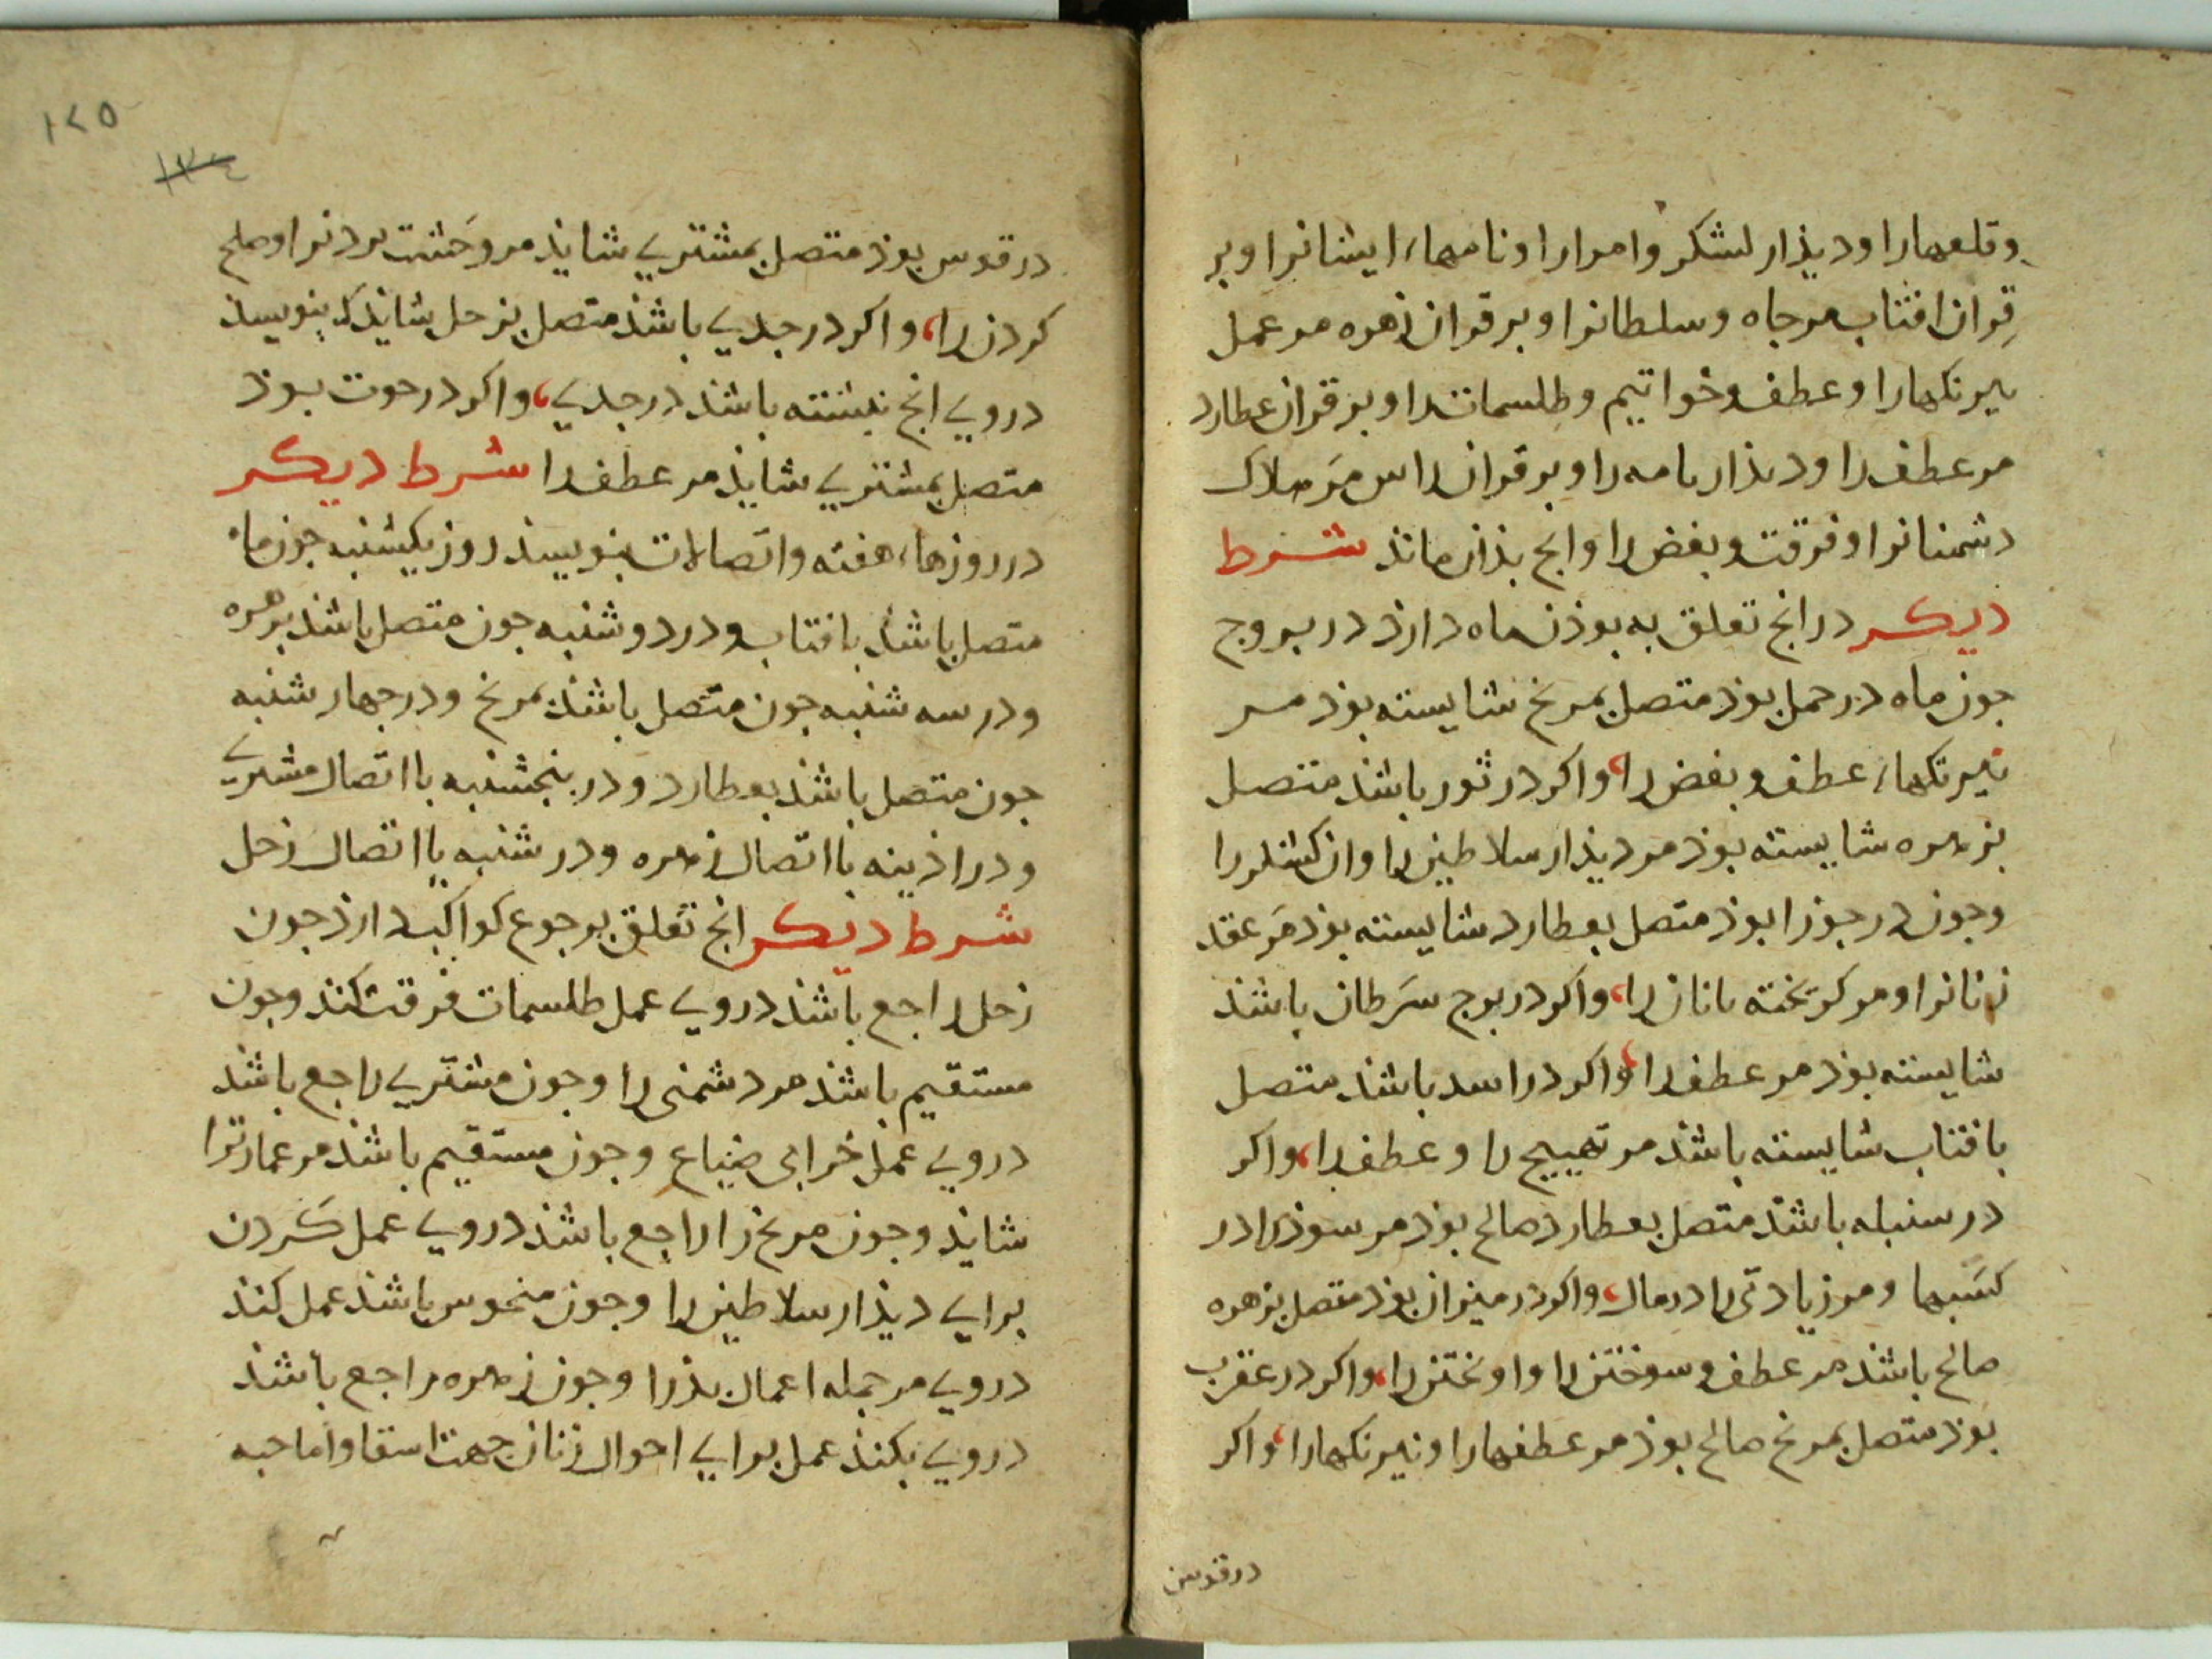 وقلعهارا ودیذار لشکر وامرارا ونامهاء ایشانرا وبر
قِران افتاب مرجاه وسلطانرا وبر قران زهره مر عمل
نیرنکهارا وعطف وخواتیم وطلسمات را وبر قران عطارد
مر عطف را ودیذار نامه را وبر قران راس مَر هلاک
دشمنانرا وفرقت وبغض را وانج بذان ماند شرط
دیکر در انج تعلق به بوذن ماه دارذ در بروج
جون ماه در حمل بوذ متصل بمریخ شایسته بوذ مر
نیرنکهاء عطف وبغض را، واکر در ثور باشذ متصل
بزهره شایسته بوذ مر دیذار سلاطین را وان کشندرا
وجون در جوزا بوذ متصل بعطارد شایسته بوذ مَر عقد
زنانرا ومر کریخته بانان را، واکر در برج سَرطان باشذ
شایسته بوذ مر عطف را، واکر در اسد باشذ متصل
بافتاب شایسته باشذ مر تهییج را وعطف را، واکر
در سنبله باشذ متصل بعطارد صالح بوذ مر سوذرا در
کسَبها ومر زیادتی را در مال، واکر در میزان بوذ متصل بزهره
صالح باشذ مر عطف وسوختن را واویختن را، واکر در عقرب
بوذ متصل بمریخ صالح بوذ مر عطفهارا ونیرنکهارا، واکر
در قوس
۱۲۵
۱۲۴
در قوس بوذ متصل بمشتری شایذ مر وَحشت بردنرا وصلح
کردن را، واکر در جدی باشذ متصل بزحل شایذ که بنویسذ
در وی انج نبشته باشذ در جدی، واکر در حوت بوذ
متصل بمشتری شایذ مر عطف را شرط دیکر
در روزهاء هفته واتصالات بنویسذ روز یکشنبه جون ماه
متصل باشذ بافتاب ودر دوشنبه جون متصل باشذ بزهره
ودر سه شنبه جون متصل باشذ بمریخ ودر جهار شنبه
جون متصل باشذ بعطارد ودر بنجشنبه باتصال مشتری
ودر اذینه بااتصال زهره ودر شنبه بااتصال زحل
شرط دیکر انج تعلق برجوع کواکب دارذ جون
زحل راجع باشذ در وی عمل طلسمات فرقت کنذ وجون
مستقیم باشذ مر دشمنی را وجون مشتری راجع باشذ
در وی عمل خرابی ضیاع وجون مستقیم باشذ مر عمارترا
شایذ وجون مریخ را راجع باشذ در وی عمل کَردن
برای دیذار سلاطین را وجون منحوس باشذ عمل کنذ
در وی مر جمله اعمال بذرا وجون زهره راجع باشذ
در وی بکنذ عمل برای احوال زنان جهت اسقا واما حبه